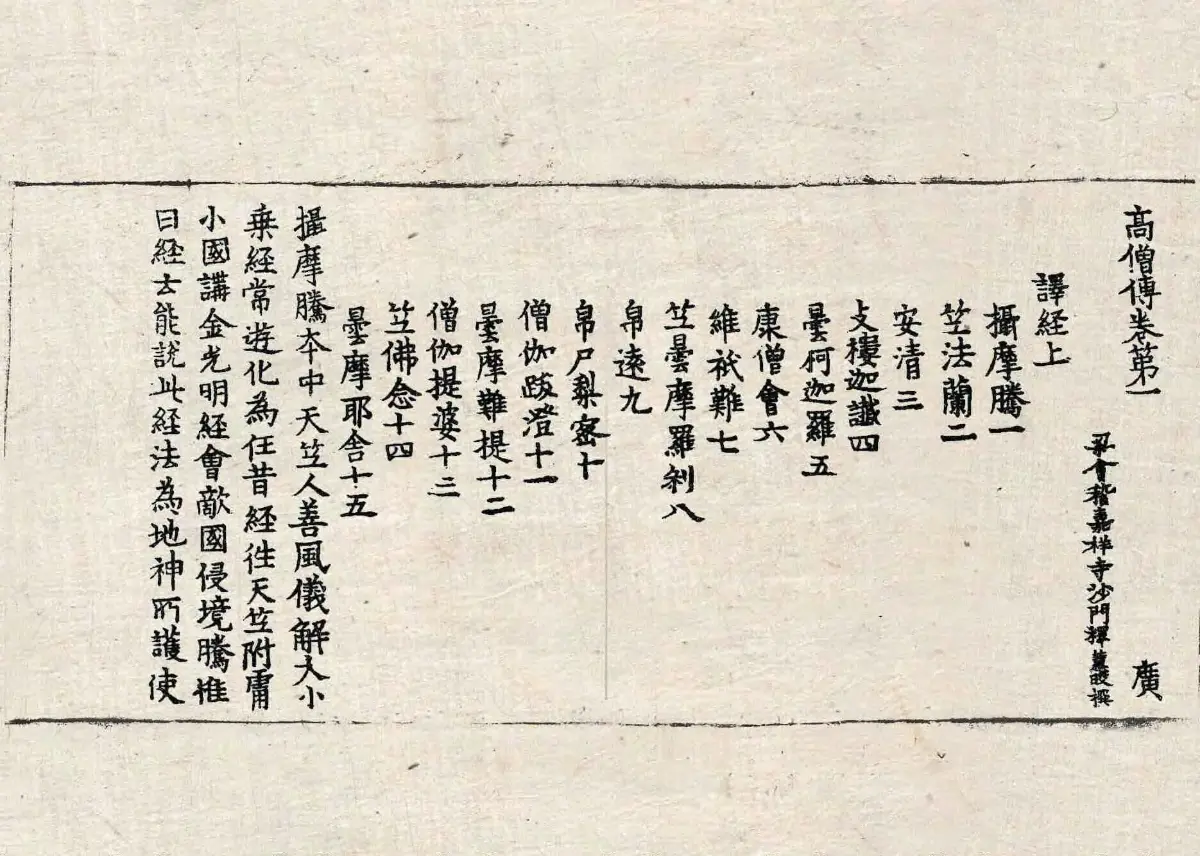 高僧傳卷第一 廣
梁會稽嘉祥寺沙門釋慧皎撰
譯經上
攝摩騰一
竺法蘭二
安清三
支樓迦讖四
曇柯迦羅五
康僧會六
維祇難七
竺曇摩羅剎八
帛遠九
帛尸梨密十
僧伽跋澄十一
曇摩難提十二
僧伽提婆十三
竺佛念十四
曇摩耶舍十五
攝摩騰本中天竺人善風儀解大小
乘經常遊化為任昔經往天竺附庸
小國講金光明經會敵國侵境騰惟
曰經云能說此經法為地神所護使